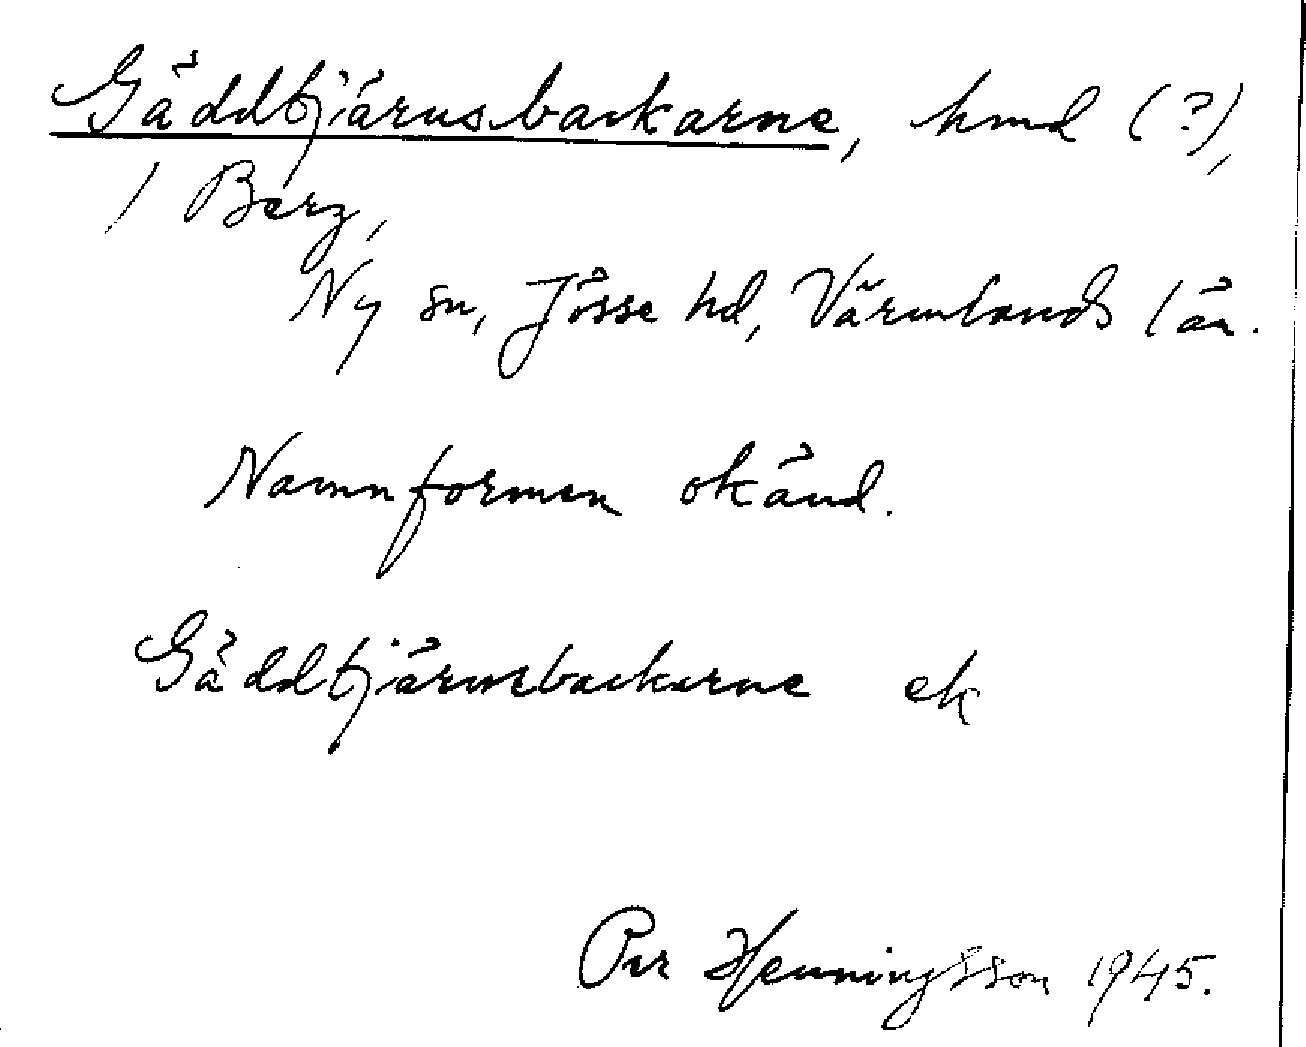 Gäddtjärnsbackarne, hmd (?),
1 Berg,
Ny sn, Jösse hd, Värmlands län.
Namnformen okänd.
Gäddtjärnsbackarne ek
Per Henningsson 1945.